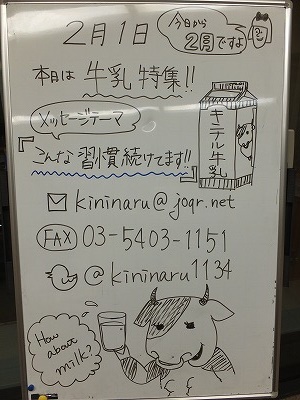 2月1日
今日から
2月ですよ
本日は 牛乳 特集!!
メッセージテーマ
『こんな 習慣 続けてます!!』
キニナル牛乳
kininaru@joqr.net
FAX 03-5403-1151
@kininaru1134
How
about
milk?